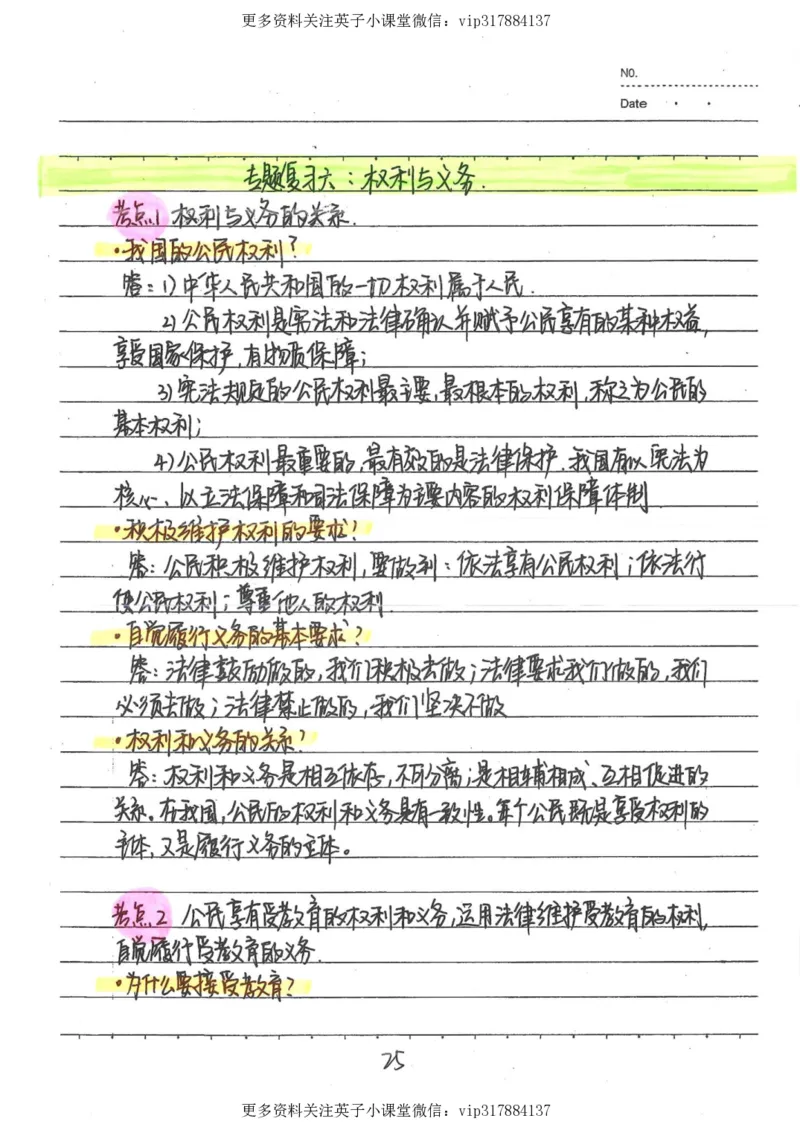 更多资料关注英子小课堂微信：vip317884137
NO.
Date
专题复习六：权利与义务.
考点1 权利与义务的关系.
·我国的公民权利？
答：1)中华人民共和国的一切权利属于人民.
2)公民权利是宪法和法律确认并赋予公民享有的某种权益,
享受国家保护,有物质保障;
3)宪法规定的公民权利最主要,最根本的权利,称之为公民的
基本权利;
4)公民权利最重要的,最有效的是法律保护.我国有以宪法为
核心、以立法保障和司法保障为主要内容的权利保障体制
·积极维护权利的要求?
答：公民积极维护权利,要做到：依法享有公民权利;依法行
使公民权利;尊重他人的权利.
·自觉履行义务的基本要求?
答：法律鼓励做的,我们积极去做;法律要求我们做的,我们
必须去做;法律禁止做的,我们坚决不做
·权利和义务的关系?
答：权利和义务是相互依存,不可分离;是相辅相成、互相促进的
关系。在我国,公民的权利和义务具有一致性。每个公民既是享受权利的
主体,又是履行义务的主体。
考点2 公民享有受教育的权利和义务,运用法律维护受教育的权利,
自觉履行受教育的义务.
·为什么要接受教育?
25
更多资料关注英子小课堂微信：vip317884137